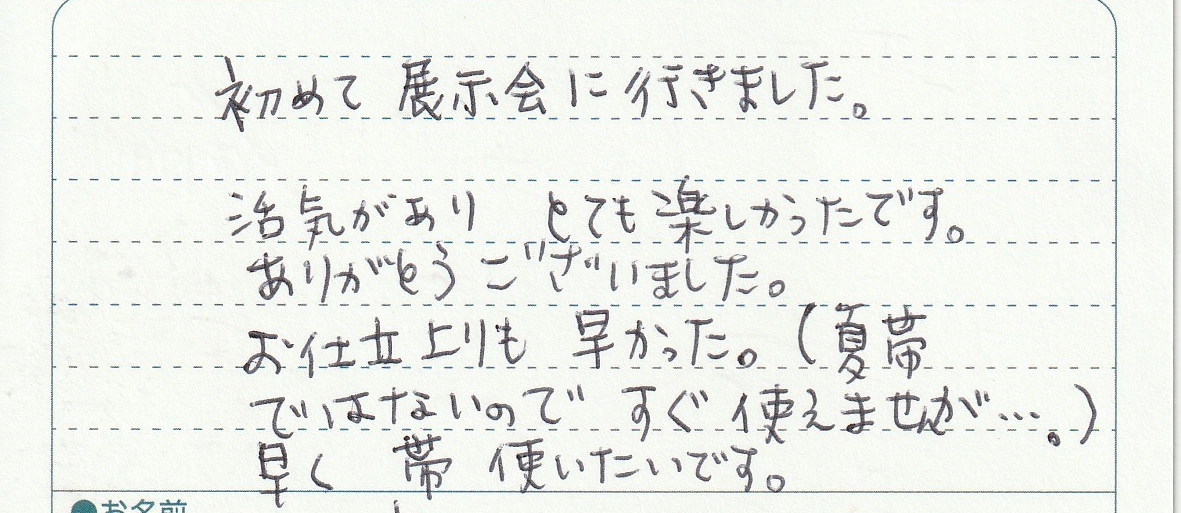 初めて 展示会に行きました。
活気があり とても楽しかったです。
ありがとうございました。
お仕立上りも 早かった。(夏帯
ではないので すぐ使えませんが…。)
早く 帯 使いたいです。
●お名前